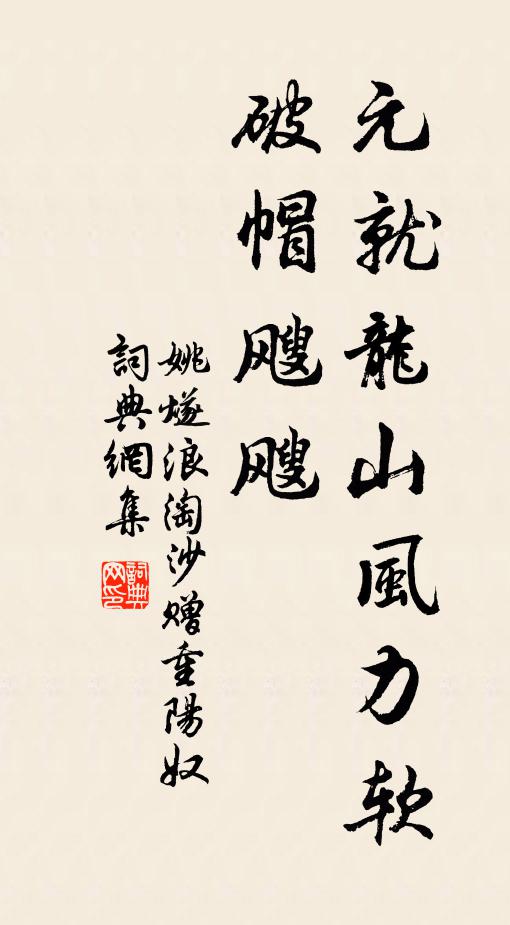 元就龍山風力软
破帽颼颼
姚燧浪淘沙赠重陽奴
詞典網集
詞典网印